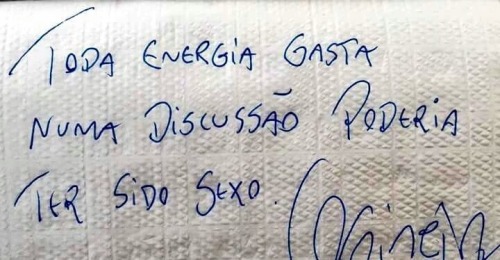 TODA ENERGIA GASTA
NUMA DISCUSSÃO PODERIA
TER SIDO SEXO.